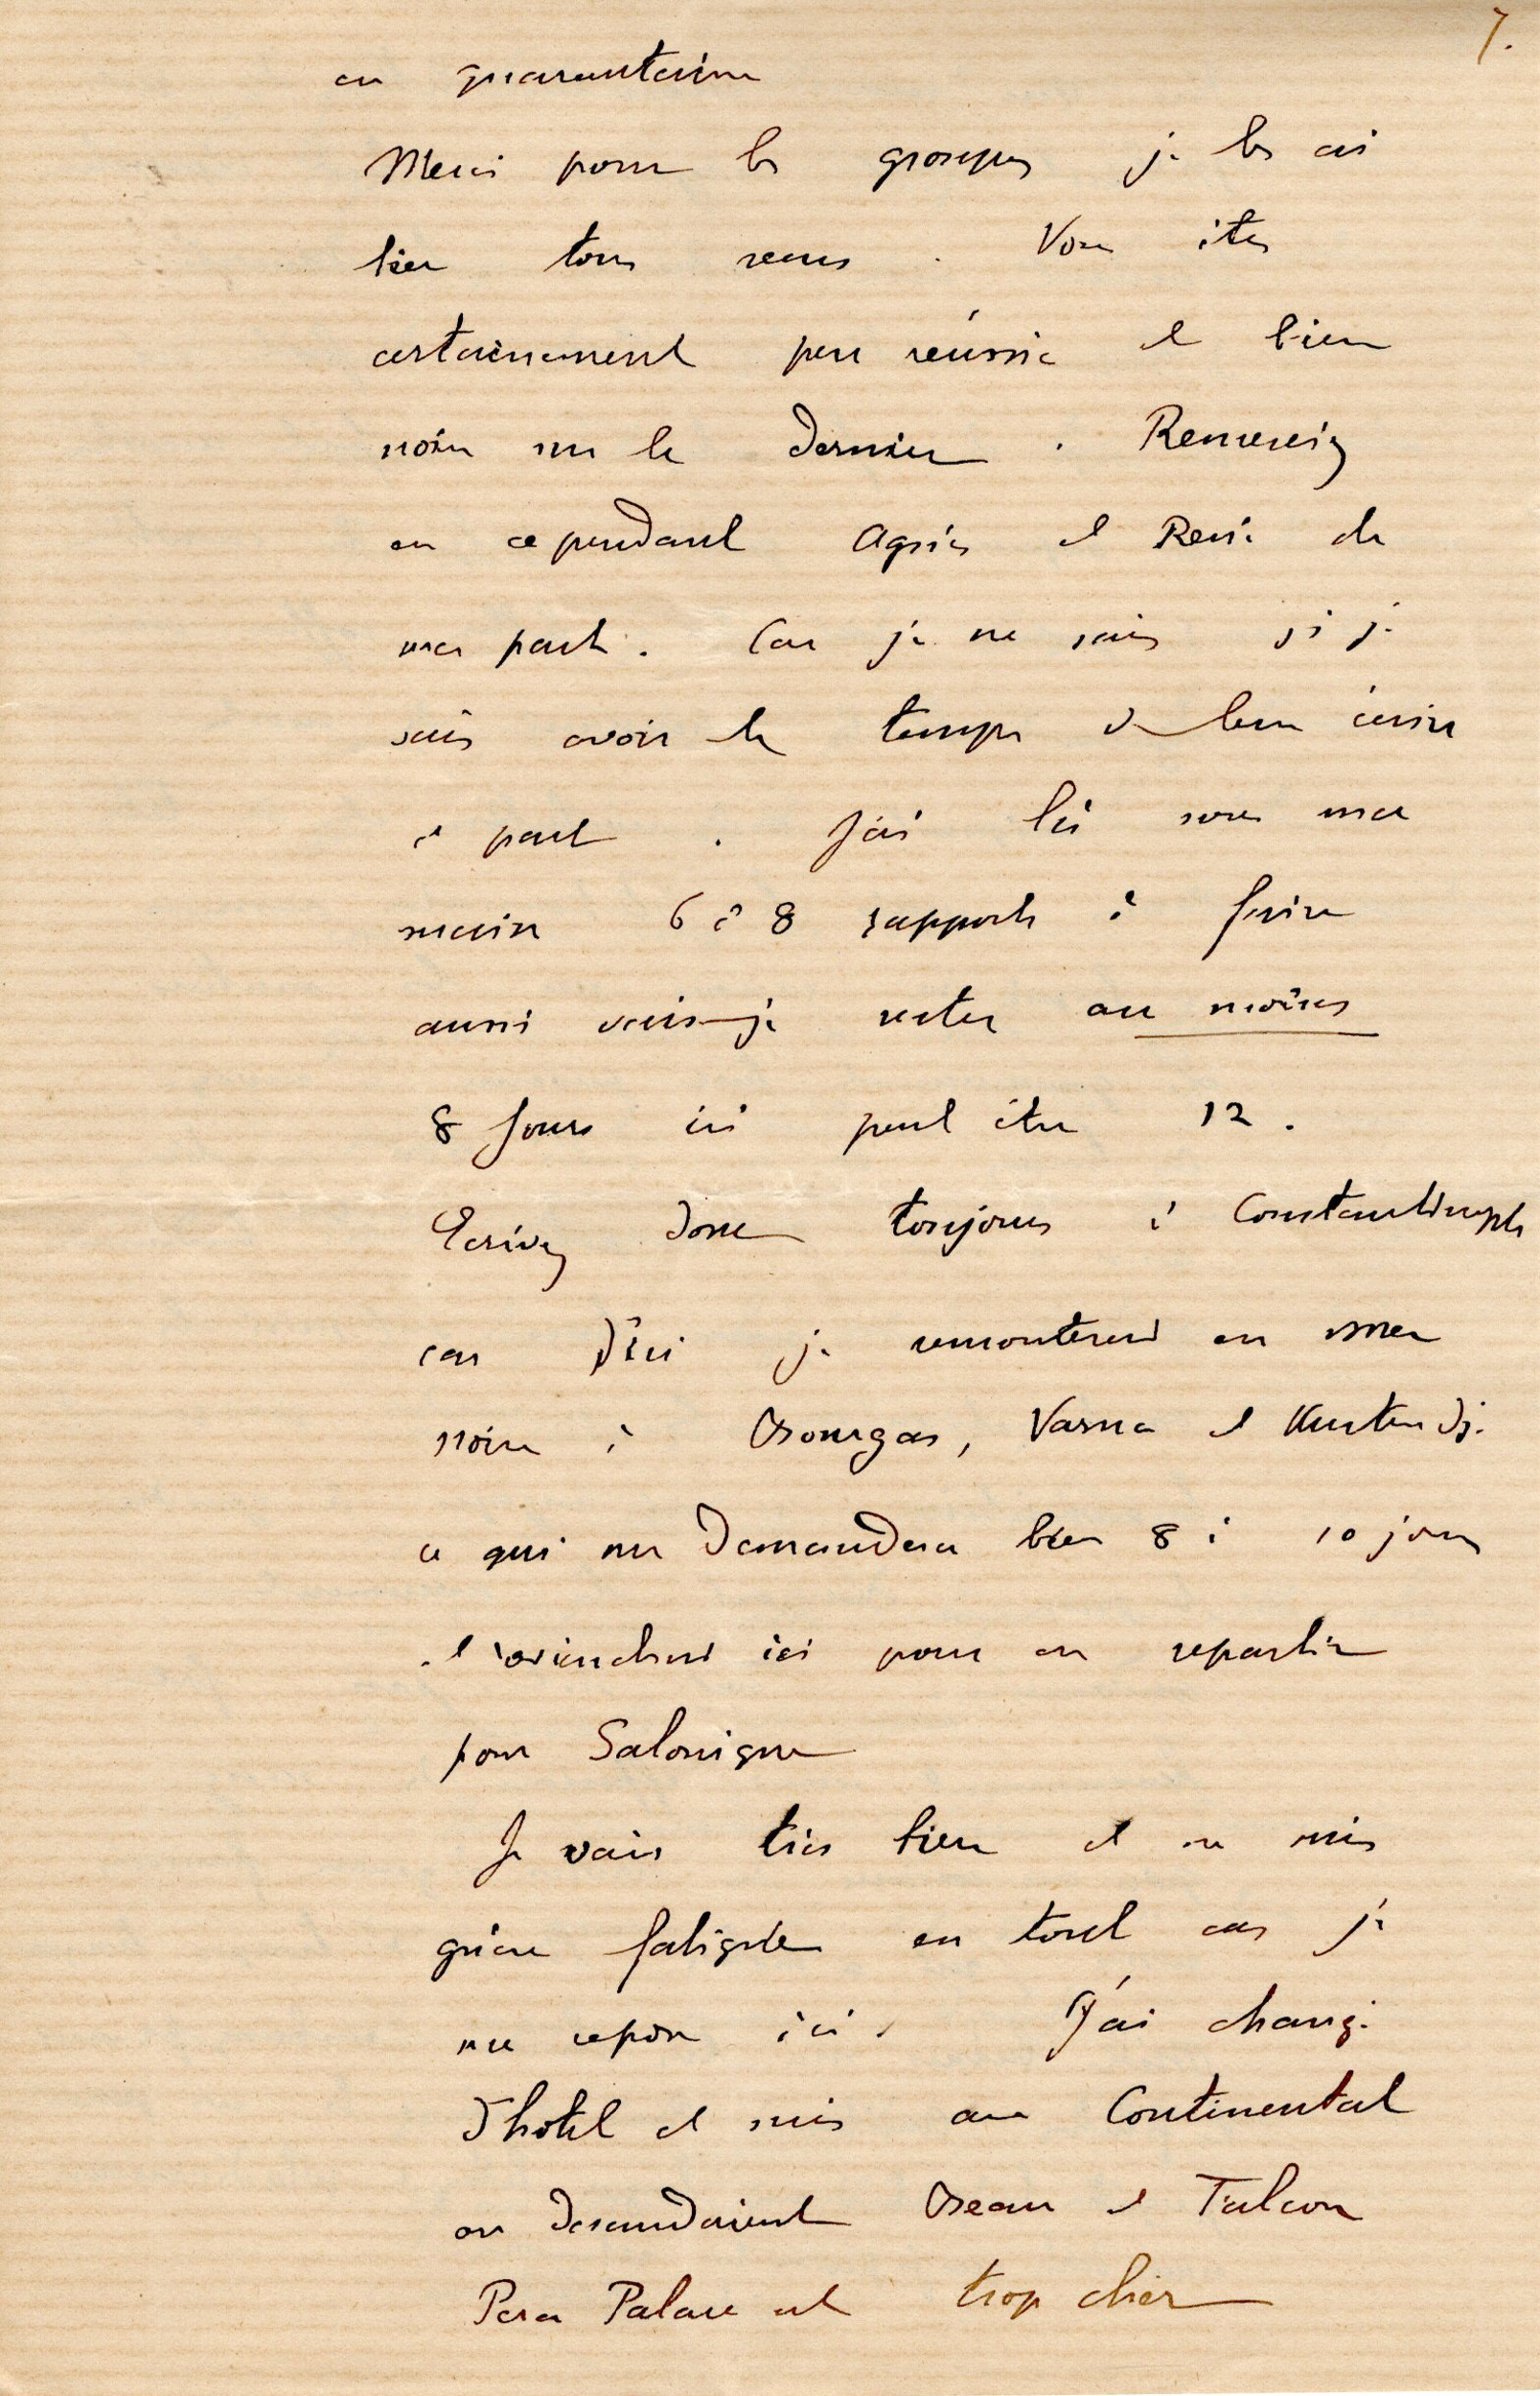 7.
en quarantaine
Merci pour les groupes je les ai
bien tous reçus. Vous êtes
certainement peu réussie et bien
noire sur le dernier. Remerciez
en cependant Agnès et René de
ma part. Car je ne sais si je
vais avoir le temps de leur écrire
à part. J'ai là sous ma
main 6 à 8 rapports à faire
aussi vais-je rester au moins
8 jours ici peut être 12.
Ecrivez donc toujours à Constantinople
car d'ici je remonterai en mer
noire à Bourgas, Varna et Kustendje
ce qui me demandera bien 8 à 10 jours
et reviendrai ici pour en repartir
pour Salonique
Je vais très bien et ne suis
guère fatiguée en tout cas je
me repose ici. J'ai changé
d'hotel et suis au Continental
ou descendaient Beau et Talcon
Pera Palace est trop cher